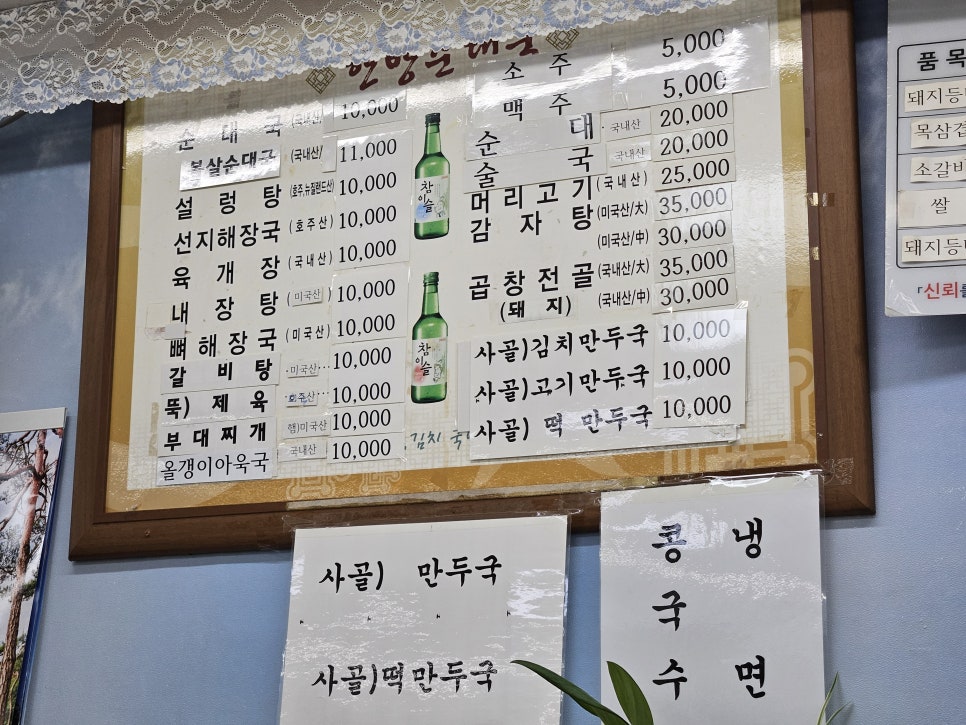 순대국 (국내산) 10,000
볼살순대국 (국내산/ 11,000
설렁탕 (호주,뉴질랜드산) 10,000
선지해장국 (호주산) 10,000
육개장 (국내산) 10,000
내장탕 (미국산) 10,000
뼈해장국 (미국산) 10,000
갈비탕 ·미국산··· 10,000
뚝) 제육 10,000
부대찌개 햄)미국산 10,000
올갱이아욱국 국내산 10,000
참이슬
참이슬
김치
소주 5,000
맥주 5,000
순대 ·국내산 20,000
술국 국내산 20,000
머리고기 (국내산) 25,000
감자탕 (미국산/大) 35,000
(미국산/中) 30,000
곱창전골 (국내산/大) 35,000
(돼지) (국내산/中) 30,000
사골)김치만두국 10,000
사골)고기만두국 10,000
사골) 떡 만두국 10,000
사골) 만두국
사골)떡만두국
콩국수
냉면
품목
돼지등
목삼겹
소갈비
쌀
돼지등
「신뢰를